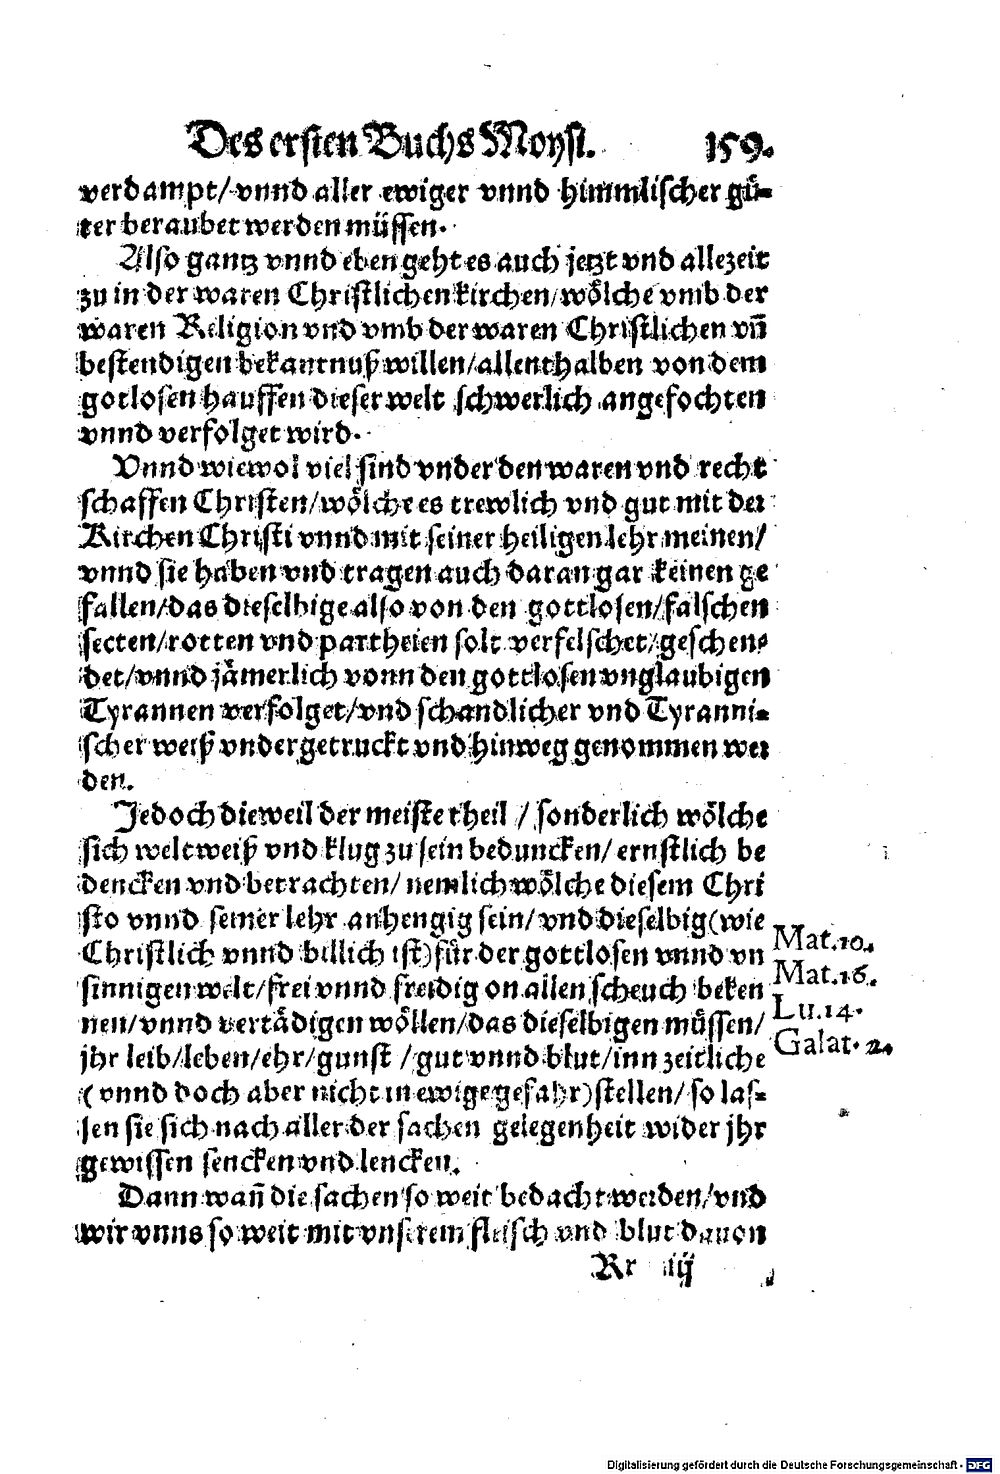 Des ersten Buchs Mosyi. 159.
verdampt/ vnnd aller ewiger vnnd himmlischer gü-
ter beraubet werden müssen.
Also gantz vnnd eben geht es auch jetzt vnd allezeit
zu in der waren Christlichen kirchen/ wölche vmb der
waren Religion vnd vmb der waren Christlichen vn̄
bestendigen bekantnuß willen/ allenthalben von dem
gotlosen hauffen dieser welt schwerlich angefochten
vnnd verfolget wird.
Vnnd wiewol viel sind vnder den waren vnd recht
schaffen Christen/ wölche es trewlich vnd gut mit der
Kirchen Christi vnnd mit seiner heiligen lehr meinen/
vnnd sie haben vnd tragen auch daran gar keinen ge
fallen/ das dieselbige also von den gottlosen/ falschen
secten/ rotten vnd partheien solt verfelschet/ geschen-
det/ vnnd jämerlich vonn den gottlosen vnglaubigen
Tyrannen verfolget/ vnd schandlicher vnd Tyranni-
scher weiß vndergetruckt vnd hinweg genommen wer
den.
Jedoch dieweil der meiste theil / sonderlich wölche
sich weltweiß vnd klug zu sein beduncken/ ernstlich be
dencken vnd betrachten/ nemlich wölche diesem Chri
sto vnnd seiner lehr anhengig sein/ vnd dieselbig (wie
Christlich vnnd billich ist) für der gottlosen vnnd vn
sinnigen welt/ frei vnnd freidig on allen scheuch beken
nen/ vnnd vertädigen wöllen/ das dieselbigen müssen/
jhr leib/ leben/ ehr/ gunst / gut vnnd blut/ inn zeitliche
(vnnd doch aber nicht in ewige gefahr) stellen/ so las-
sen sie sich nach aller der sachen gelegenheit wider jhr
gewissen sencken vnd lencken.
Dann wan̄ die sachen so weit bedacht werden/ vnd
wir vnns so weit mit vnserem fleisch vnd blut dauon
Rr iij
Mat.10.
Mat.16.
Lu.14.
Galat. 2.
Digitalisierung gefördert durch die Deutsche Forschungsgemeinschaft - DFG